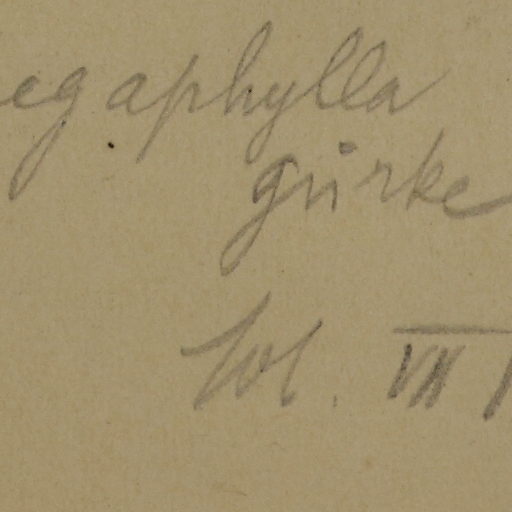 egaphylla
Gürke
Vol. VII